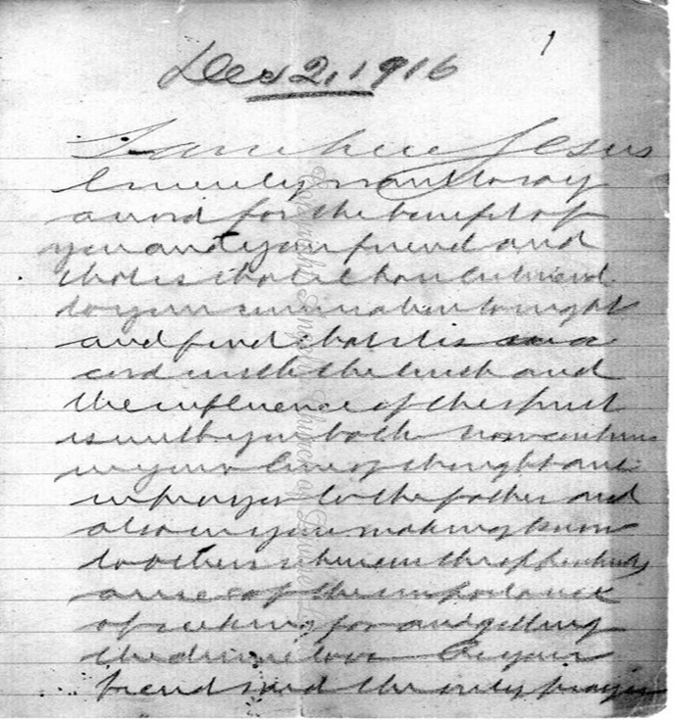 1
Dec 2, 1916
I am here Jesus
I merely want to say
a word for the benefit of
you and your friend and
that is that I have listened
to your conversation tonight
and find that it is in a
cord with the truth and
the influence of the spirit
is with you both Now continue
in your line of thought and
in prayer to the father and
also in your making known
to others whenever the opportunity
arises of the importance
of seeking for and getting
the divine love As your
friend said the only prayer